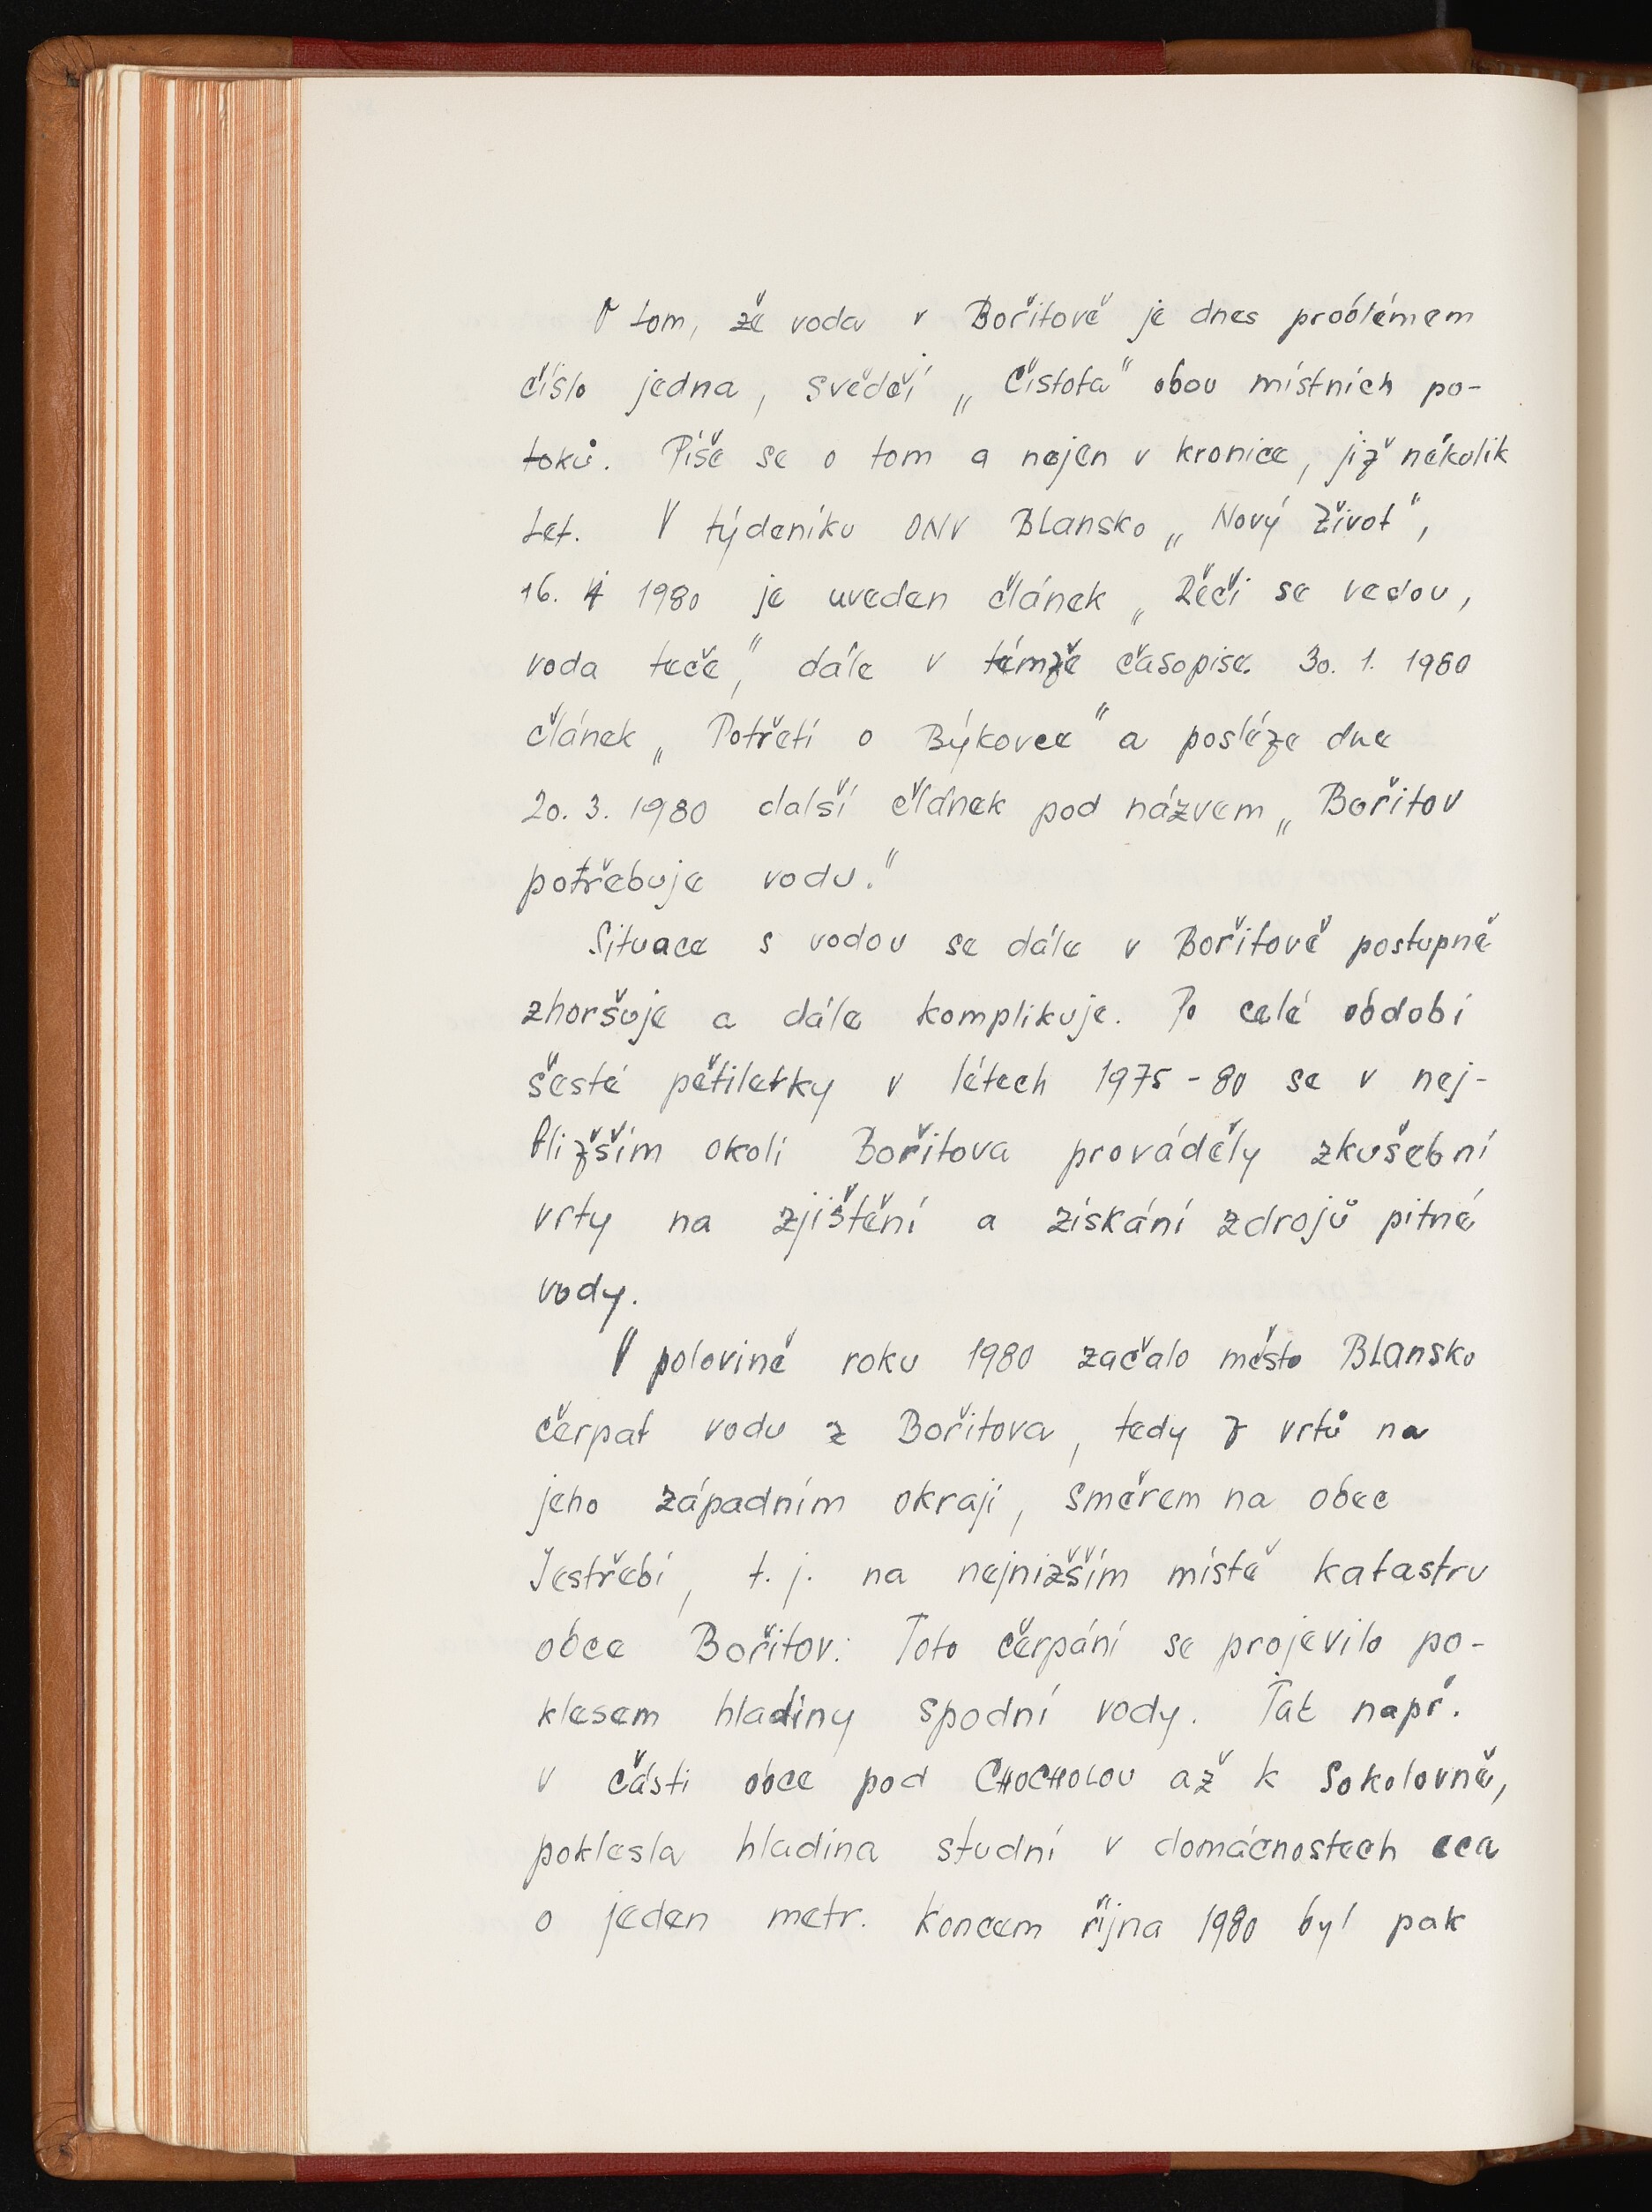 O tom, že voda v Bořitově je dnes problémem
číslo jedna, svědčí „čistota" obou místních po-
toků. Píše se o tom a nejen v kronice, již několik
let. V týdeníku ONV Blansko „Nový život",
16. 4 1980 je uveden článek „Řeči se vedou,
voda teče," dále v témže časopise 30. 1. 1980
článek „Potřetí o Býkovce" a posléze dne
20. 3. 1980 další článek pod názvem „Bořitov
potřebuje vodu."
Situace s vodou se dále v Bořitově postupně
zhoršuje a dále komplikuje. Po celé období
šesté pětiletky v létech 1975-80 se v nej-
bližším okolí Bořitova prováděly zkušební
vrty na zjištění a získání zdrojů pitné
vody.
V polovině roku 1980 začalo město Blansko
čerpat vodu z Bořitova, tedy z vrtů na
jeho západním okraji, směrem na obec
Jestřebí, t. j. na nejnižším místě katastru
obce Bořitov. Toto čerpání se projevilo po-
klesem hladiny spodní vody. Tak např.
v části obce pod CHOCHOLOU až k Sokolovně,
poklesla hladina studní v domácnostech cca
o jeden metr. Koncem října 1980 byl pak